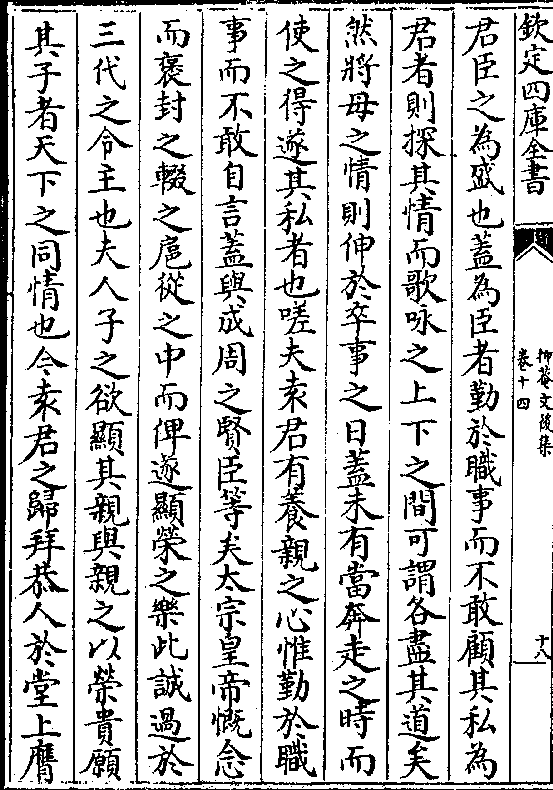 欽定四庫全書
抑菴文後集
卷十四
十八
君臣之為盛也蓋為臣者勤於職事而不敢顧其私為
君者則探其情而歌咏之上下之間可謂各盡其道矣
然將母之情則伸於卒事之日蓋未有當奔走之時而
使之得遂其私者也嗟夫袁君有養親之心惟勤於職
事而不敢自言蓋與成周之賢臣等矣太宗皇帝慨念
而褒封之輟之扈從之中而俾遂顯榮之樂此誠過於
三代之令主也夫人子之欲顯其親與親之以榮貴願
其子者天下之同情也今袁君之歸拜恭人於堂上膺